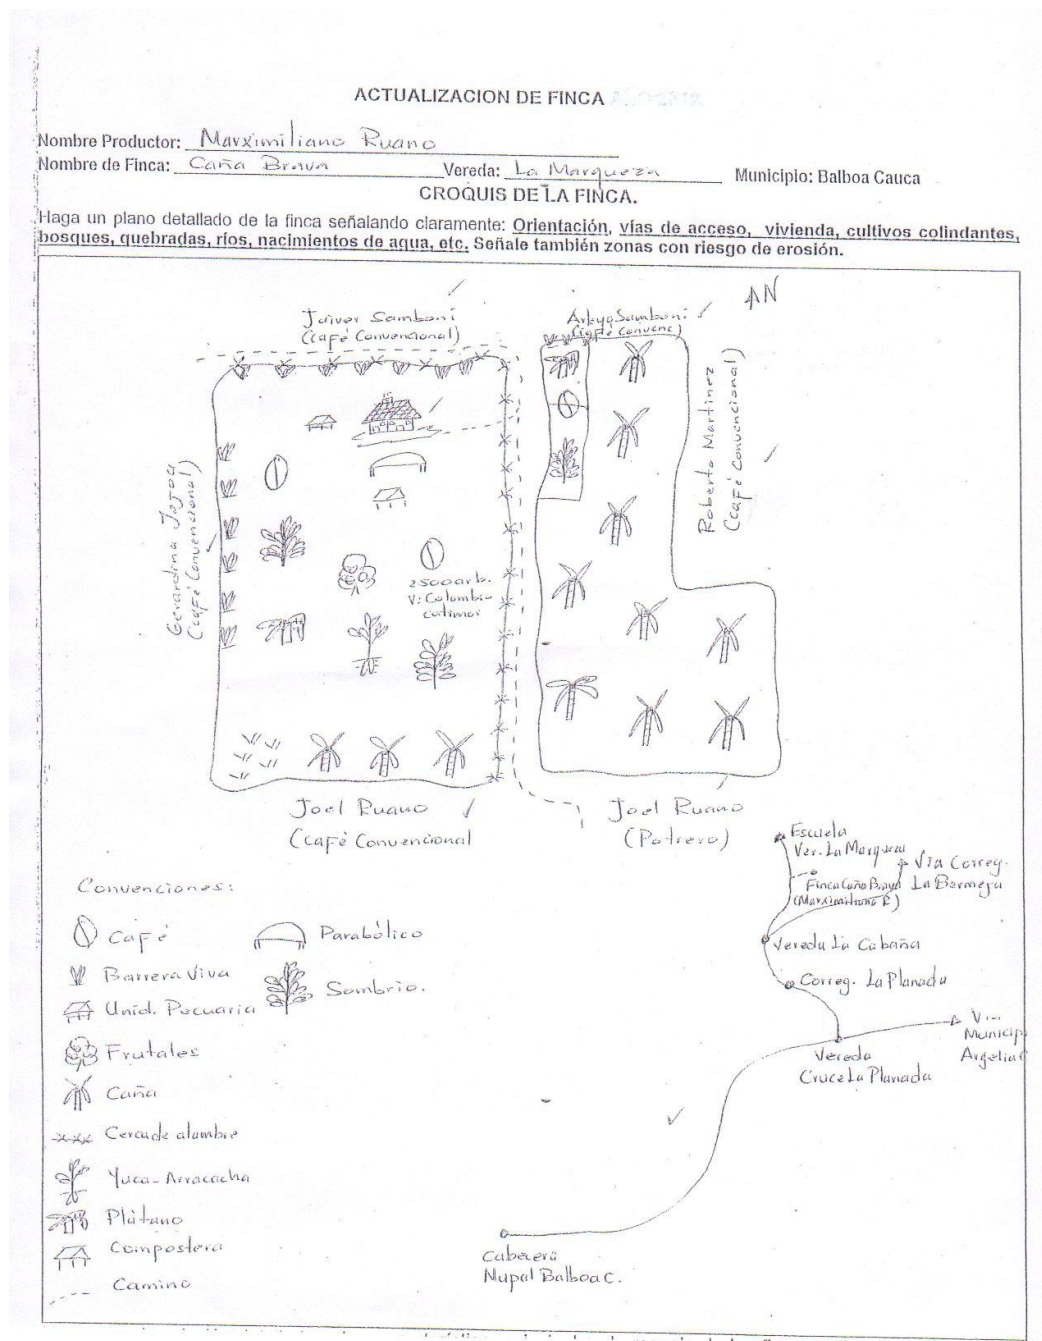 ACTUALIZACION DE FINCA
Nombre Productor: Marximiliano Ruano
Nombre de Finca: Caña Brava Vereda: La Marqueza Municipio: Balboa Cauca
CROQUIS DE LA FINCA.
Haga un plano detallado de la finca señalando claramente: Orientación, vías de acceso, vivienda, cultivos colindantes,
bosques, quebradas, ríos, nacimientos de agua, etc. Señale también zonas con riesgo de erosión.
N
Jaiver Samboni
(Café Convencional)
Samboni
(Café Convenc)
Roberto Martinez
(Café Convencional)
Gerardina Jojoa
(Café Convencional)
2500 arb.
V: Colombia
Joel Ruano
(Café Convencional
Joel Ruano
(Potrero)
Escuela
Ver. La Marqueza
Via Correg.
La Bermeja
Finca Caña Brava
(Marximiliano R)
Vereda La Cabaña
Correg. La Planada
Via
Municip
Argelia
Vereda
Cruce La Planada
Cabecera
Mupal Balboa C.
Convenciones:
Café
Barrera Viva
Unid. Pecuaria
Frutales
Caña
Cerca de alambre
Yuca - Arracacha
Plátano
Compostera
Camino
Parabólico
Sombrio.